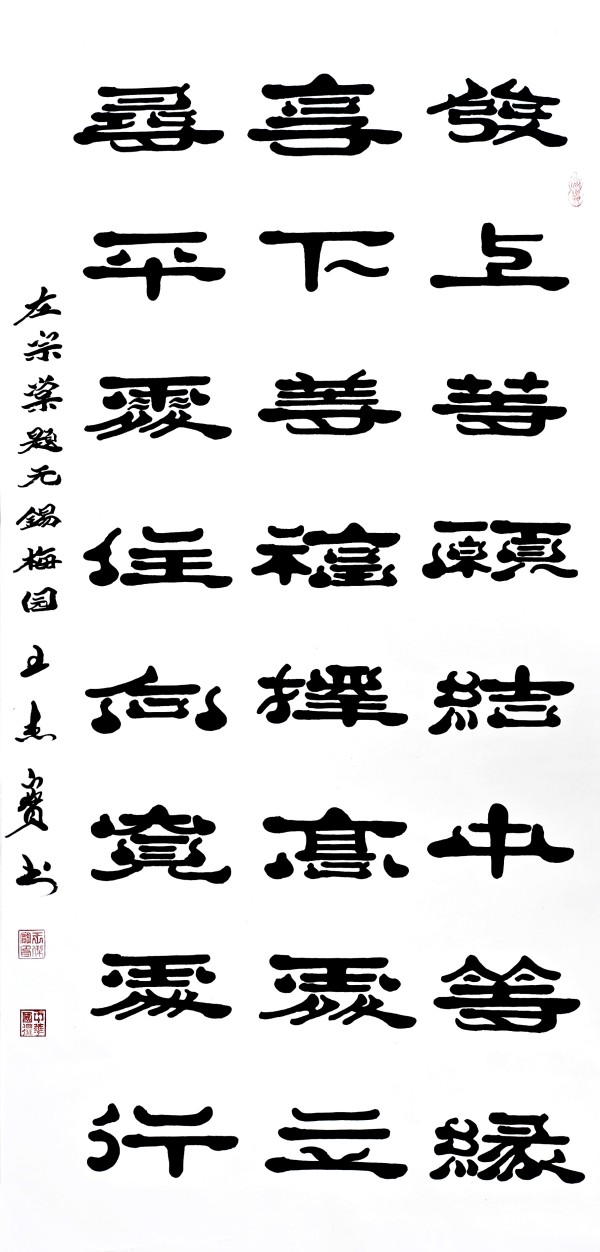 發上等願結中等緣
享下等福擇高處立
尋平處住向寬處行
左宗棠題无錫梅园 王杰寶书